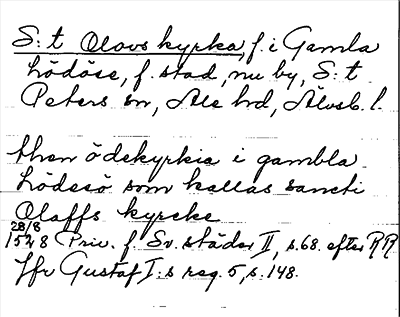 S:t Olovs kyrka, f. i Gamla
Lödöse, f. stad, nu by, S:t
Peters sn, Ale hd, Älvsb. l.
then ödekyrkia i gambla
Lödesö som kallas sancti
Olaffs kyrcke
28/8
1528 Priv. f. Sv. städer II, s. 68. efter RR
Jfr Gustaf I:s reg. 5, s. 148.